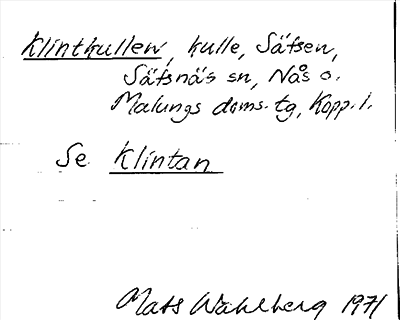 Klintkullen, kulle, Säfsen,
Säfsnäs sn, Nås o.
Malungs doms. tg, Kopp. l.
Se Klintan
Mats Wahlberg 1971